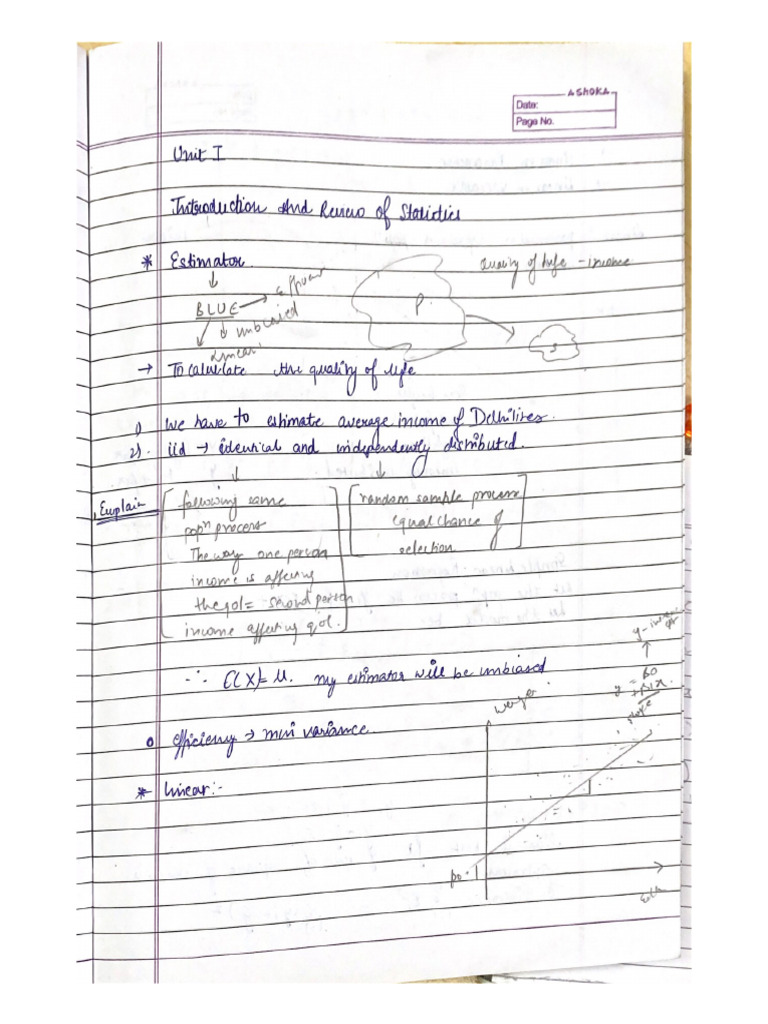 ASHOKA
Date:
Page No.
Unit I
Introduction And Review of Statistics
* Estimator
Quality of life - income
BLUE → Efficient
unbiased
Linear
P
S
→ To calculate the quality of life
1) We have to estimate average income of Delhiites.
2). iid → identical and independently distributed.
Explain
following same
popⁿ process
The way one person
income is affecting
the qol = second person
income affecting qol.
random sample process
equal chance of
selection
∴ E(X) = μ. my estimator will be unbiased
efficiency → min variance
* linear:-
y - intercept
y = β0
+ β1x.
slope
wages
β0 = 1
1
Edu